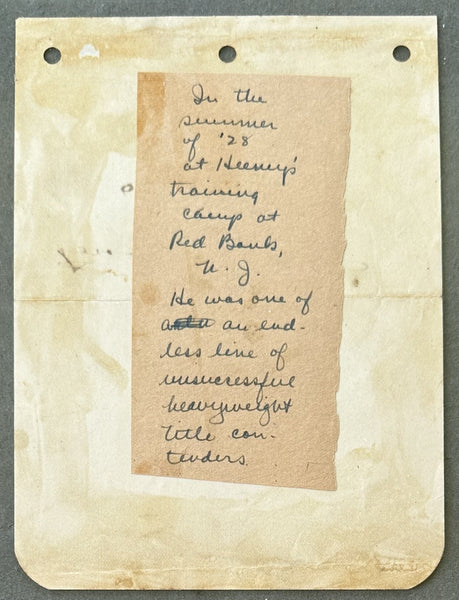 In the
summer
of '28
at Heeney's
training
camp at
Red Bank,
N. J.
He was one of
an end-
less line of
unsuccessful
heavyweight
title con-
tenders.